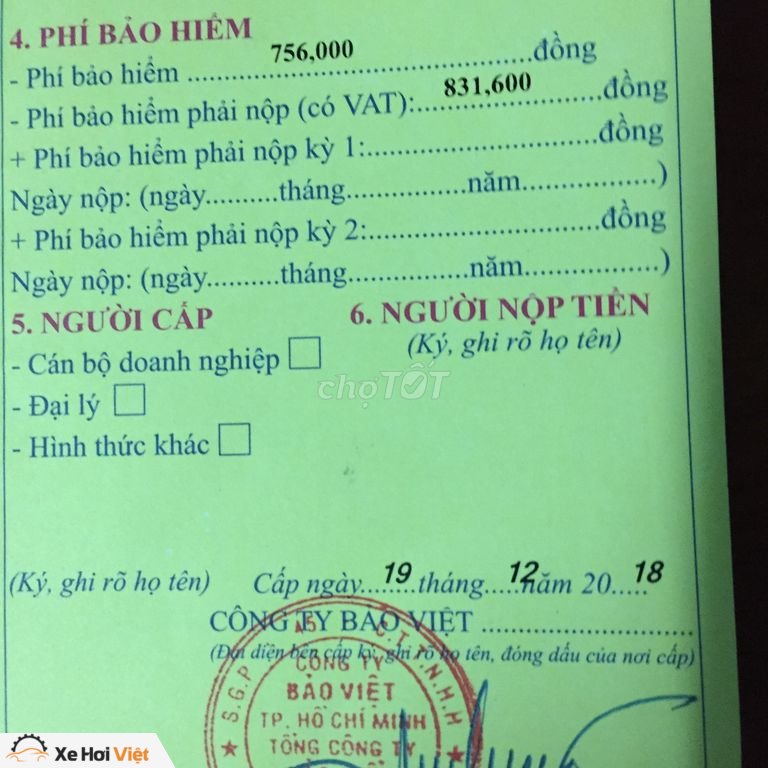 4. PHÍ BẢO HIỂM
- Phí bảo hiểm ........756,000........đồng
- Phí bảo hiểm phải nộp (có VAT):........831,600........đồng
+ Phí bảo hiểm phải nộp kỳ 1:........................đồng
Ngày nộp: (ngày..........tháng................năm..................)
+ Phí bảo hiểm phải nộp kỳ 2:........................đồng
Ngày nộp: (ngày..........tháng................năm..................)
5. NGƯỜI CẤP
- Cán bộ doanh nghiệp
- Đại lý
- Hình thức khác
6. NGƯỜI NỘP TIỀN
(Ký, ghi rõ họ tên)
chợTỐT
(Ký, ghi rõ họ tên)
Cấp ngày....19....tháng....12 năm 20....18
CÔNG TY BẢO VIỆT ..............................
(Đại diện bên cấp ký, ghi rõ họ tên, đóng dấu của nơi cấp)
CÔNG TY
BẢO VIỆT
TP. HỒ CHÍ MINH
TỔNG CÔNG TY
S.G.P
C.T.T.N.H.H
Xe Hơi Việt